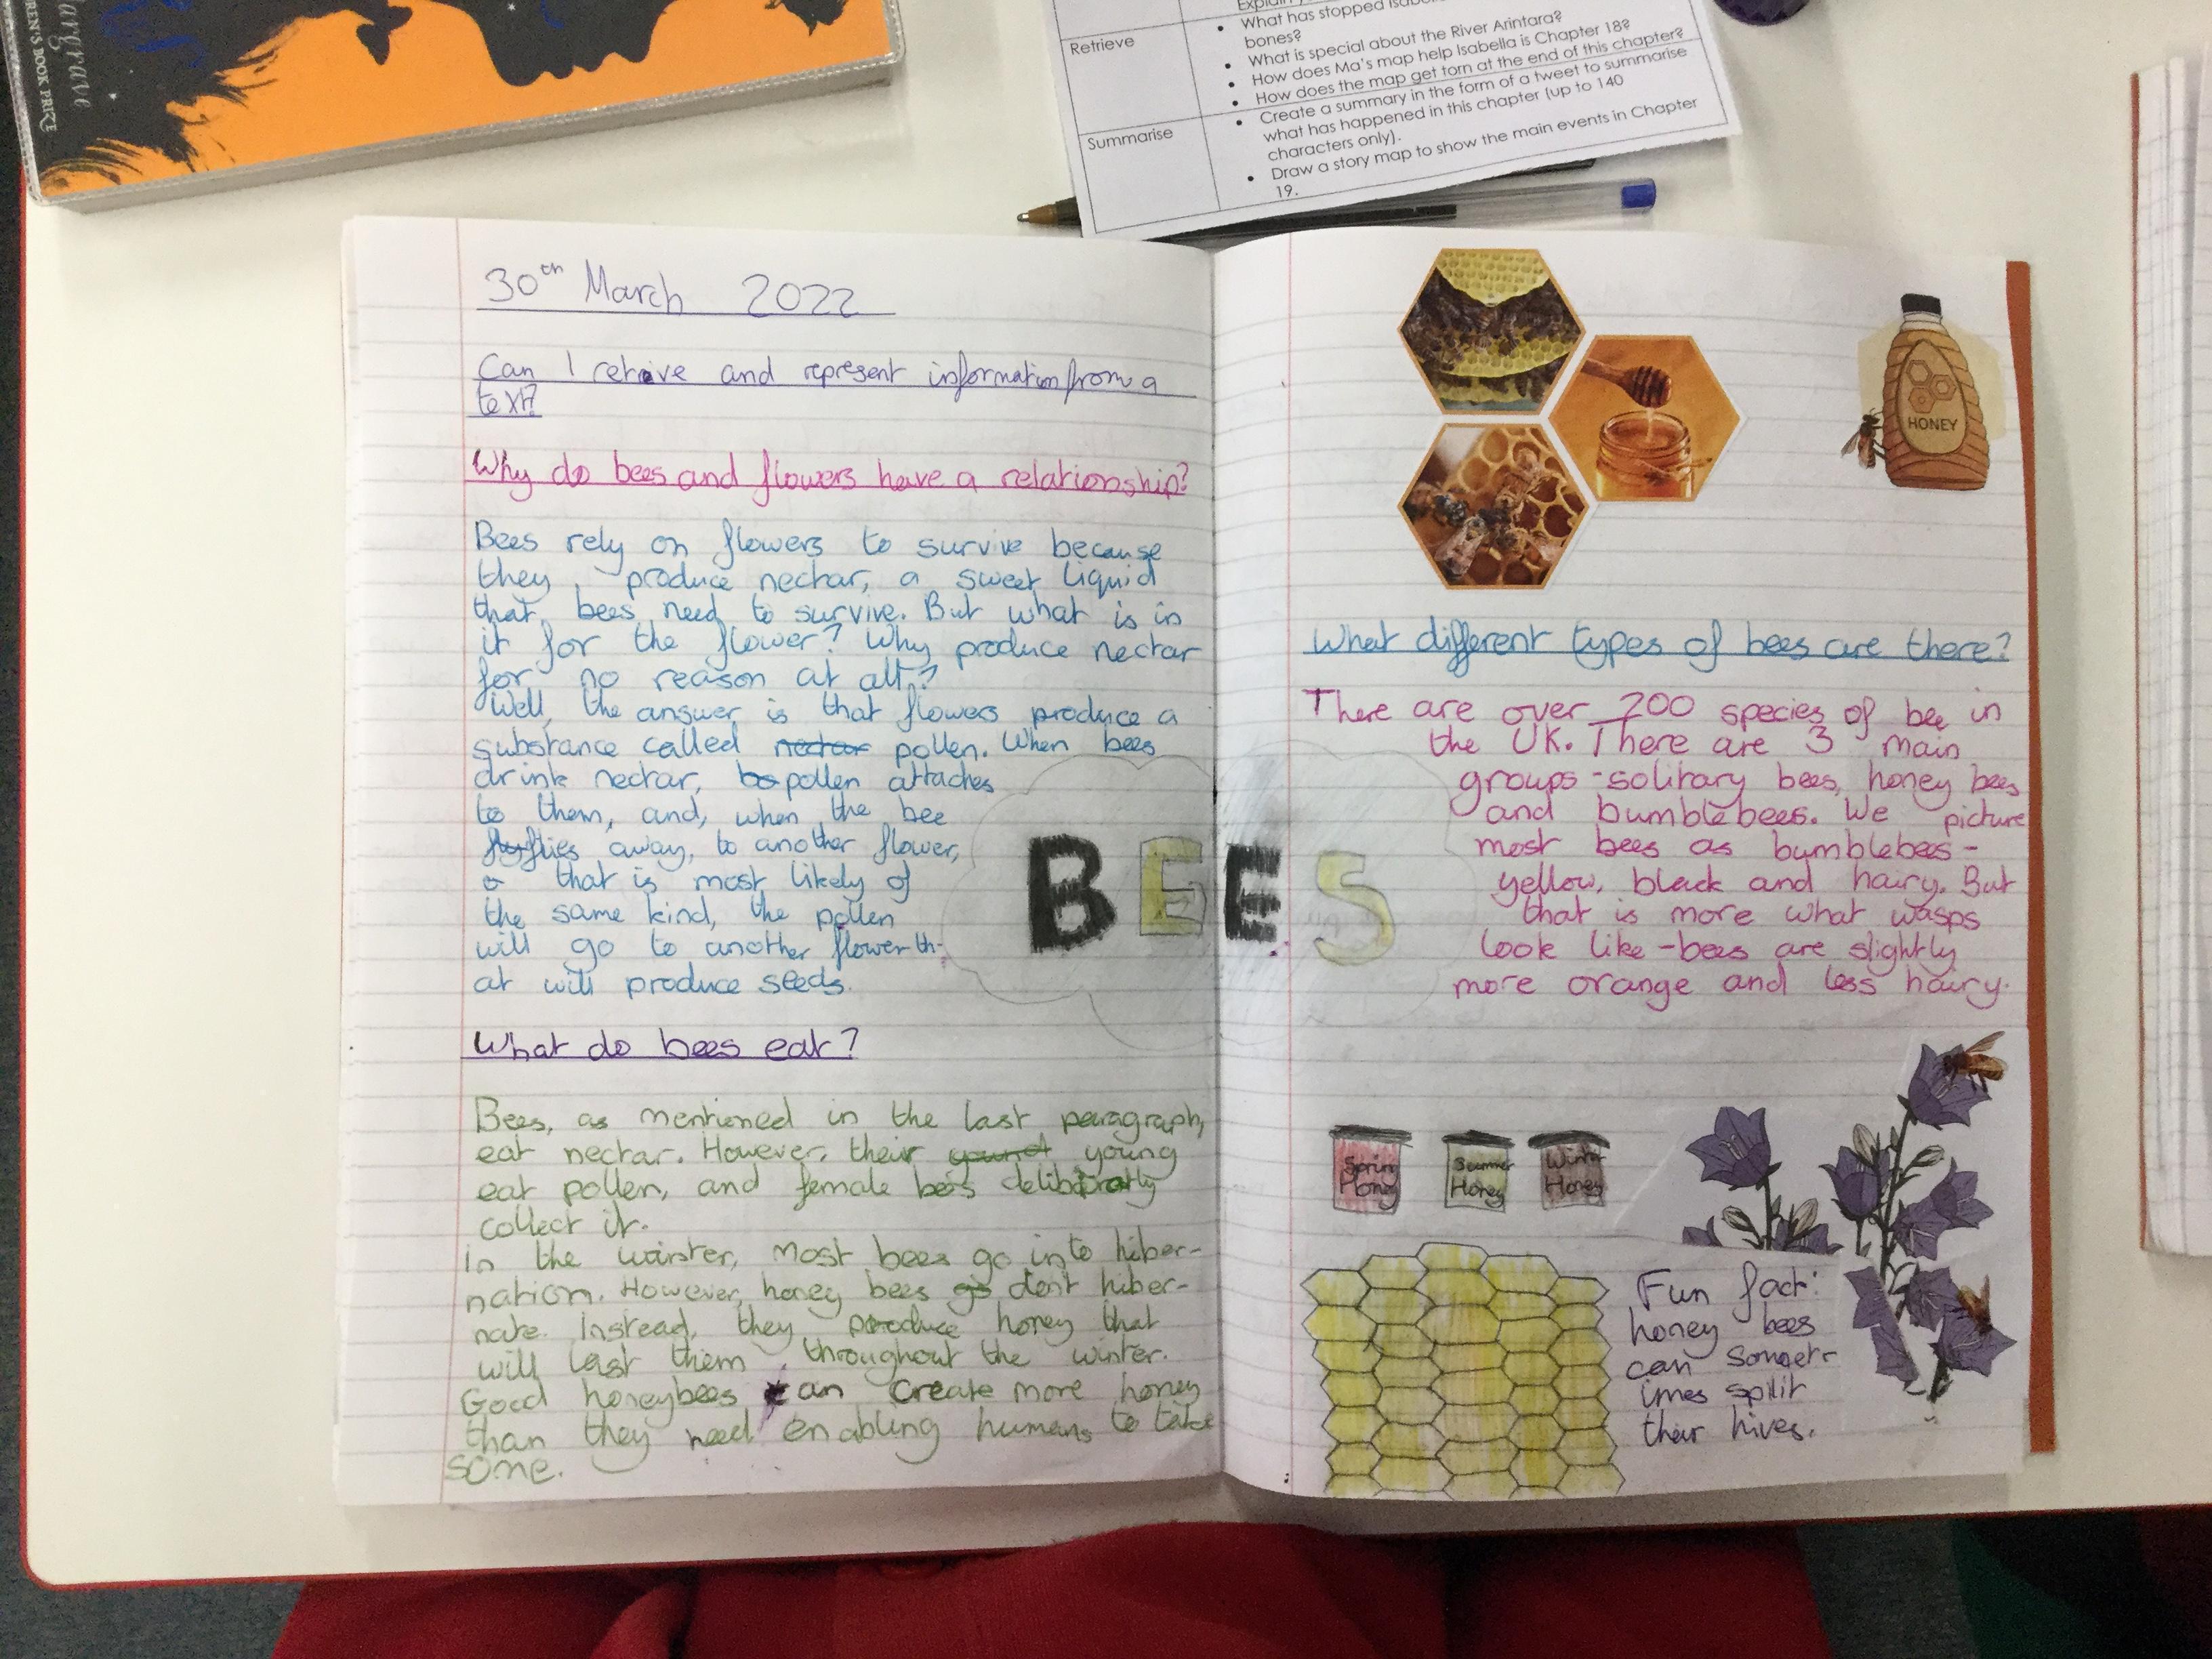 argrave
REN'S BOOK PRIZE
Retrieve
What has stopped
bones?
What is special about the River Arintara?
How does Ma's map help Isabella is Chapter 18?
How does the map get torn at the end of this chapter?
Summarise
Create a summary in the form of a tweet to summarise
what has happened in this chapter (up to 140
characters only).
Draw a story map to show the main events in Chapter
19.
30th March 2022
Can I retrive and represent information from a
text?
Why do bees and flowers have a relationship?
Bees rely on flowers to survive because
they produce nectar, a sweet liquid
that bees need to survive. But what is in
it for the flower? Why produce nectar
for no reason at all?
Well, the answer is that flowers produce a
substance called nectar pollen. When bees
drink nectar, bo pollen attaches
to them, and, when the bee
fly flies away, to another flower,
that is most likely of
the same kind, the pollen
will go to another flower th-
at will produce seeds.
What do bees eat?
Bees, as mentioned in the last paragraph,
eat nectar. However, their young
eat pollen, and female bees
collect it.
In the winter, most bees go into hiber-
nation. However, honey bees go don't hiber-
nate. Instead, they produce honey that
will last them throughout the winter.
Good honeybees can create more honey
than they need enabling humans to take
some.
BEES
HONEY
What different types of bees are there?
There are over 200 species of bee in
the UK. There are 3 main
groups - solitary bees, honey bees
and bumblebees. We picture
most bees as bumblebees -
yellow, black and hairy. But
that is more what wasps
look like - bees are slightly
more orange and less hairy.
Spring
Honey
Summer
Honey
Winter
Honey
Fun fact:
honey bees
can somet-
imes split
their hives.